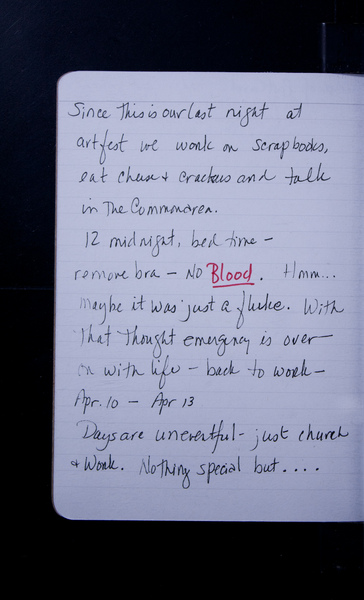 Since This is our last night at
artfest we work on scrapbooks,
eat cheese + crackers and talk
in The Common area.
12 midnight, bed time -
remove bra - NO Blood. Hmm...
maybe it was just a fluke. With
That Thought emergency is over -
on with life - back to work -
Apr. 10 - Apr 13
Days are uneventful - just church
+ Work. Nothing special but....